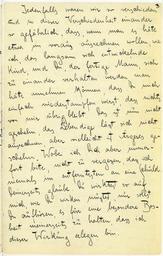 Jedenfalls waren wir so verschieden
und in dieser Verschiedenheit einander
so gefährlich, dass wenn man es hätte
etwa im voraus ausrechnen wollen, wie
ich, das langsam sich entwickelnde
Kind, und Du, der fertige Mann, sich
zu einander verhalten werden, man
hätte annehmen können, dass Du mich
einfach niederstampfen wirst, dass nichts
von mir übrig bleibt. Das ist nun nicht
geschehn, das Lebendige lässt sich nicht
ausrechnen, aber vielleicht ist Ärgeres ge-
schehn. Wobei ich Dich aber immerfort
bitte, nicht zu vergessen, dass ich
niemals im entferntesten an eine Schuld
Deinerseits glaube. Du wirktest so auf
mich, wie Du wirken musstest, nur sollst
Du aufhören, es für eine besondere Bos-
heit meinerseits zu halten, dass ich
dieser Wirkung erlegen bin.